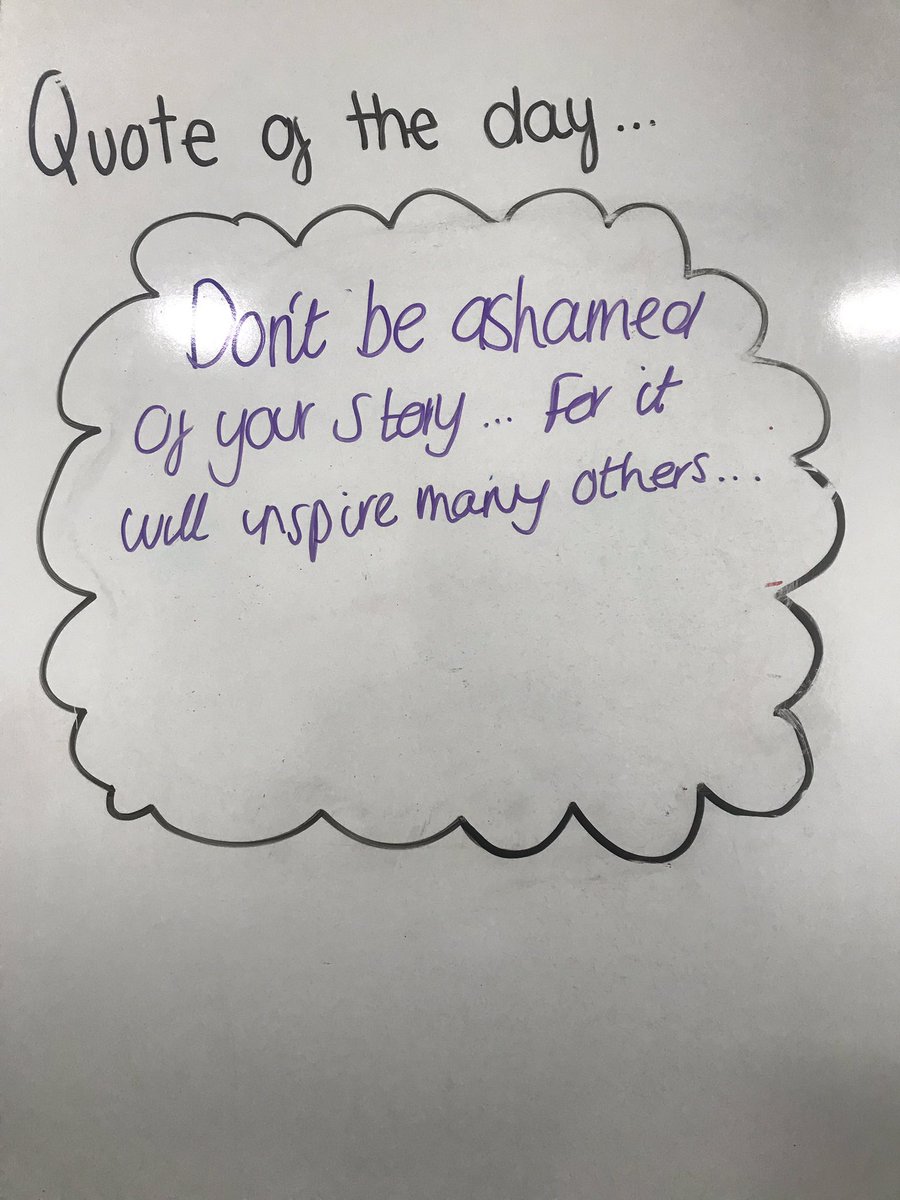 Quote of the day...
Don't be ashamed
of your story... For it
will inspire many others...